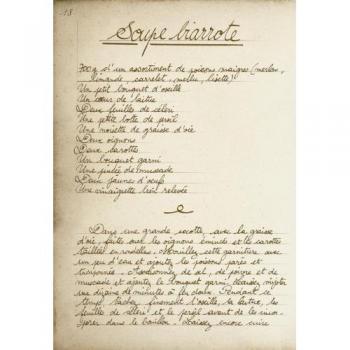 13
Soupe biarrote
700 g d'un assortiment de poissons maigres (merlan,
limande, carrelet, merlu, lisette)
Un petit bouquet d'oseille
Un cœur de laitue
Deux feuilles de céleri
Une petite botte de persil
Une noisette de graisse d'oie
Deux oignons
Deux carottes
Un bouquet garni
Une pincée de muscade
Deux jaunes d'oeufs
Une vinaigrette bien relevée
Dans une grande cocotte, avec la graisse
d'oie, faites suer les oignons émincés et les carottes
taillées en rondelles. Mouillez cette garniture avec
un peu d'eau et ajoutez les poissons parés et
tronçonnés. Assaisonnez de sel, de poivre et de
muscade et ajoutez le bouquet garni, laissez mijoter
une dizaine de minutes à feu doux. Pendant ce
temps, hachez finement l'oseille, la laitue, les
feuilles de céleri et le persil avant de les incor-
porer dans le bouillon. Laissez encore cuire